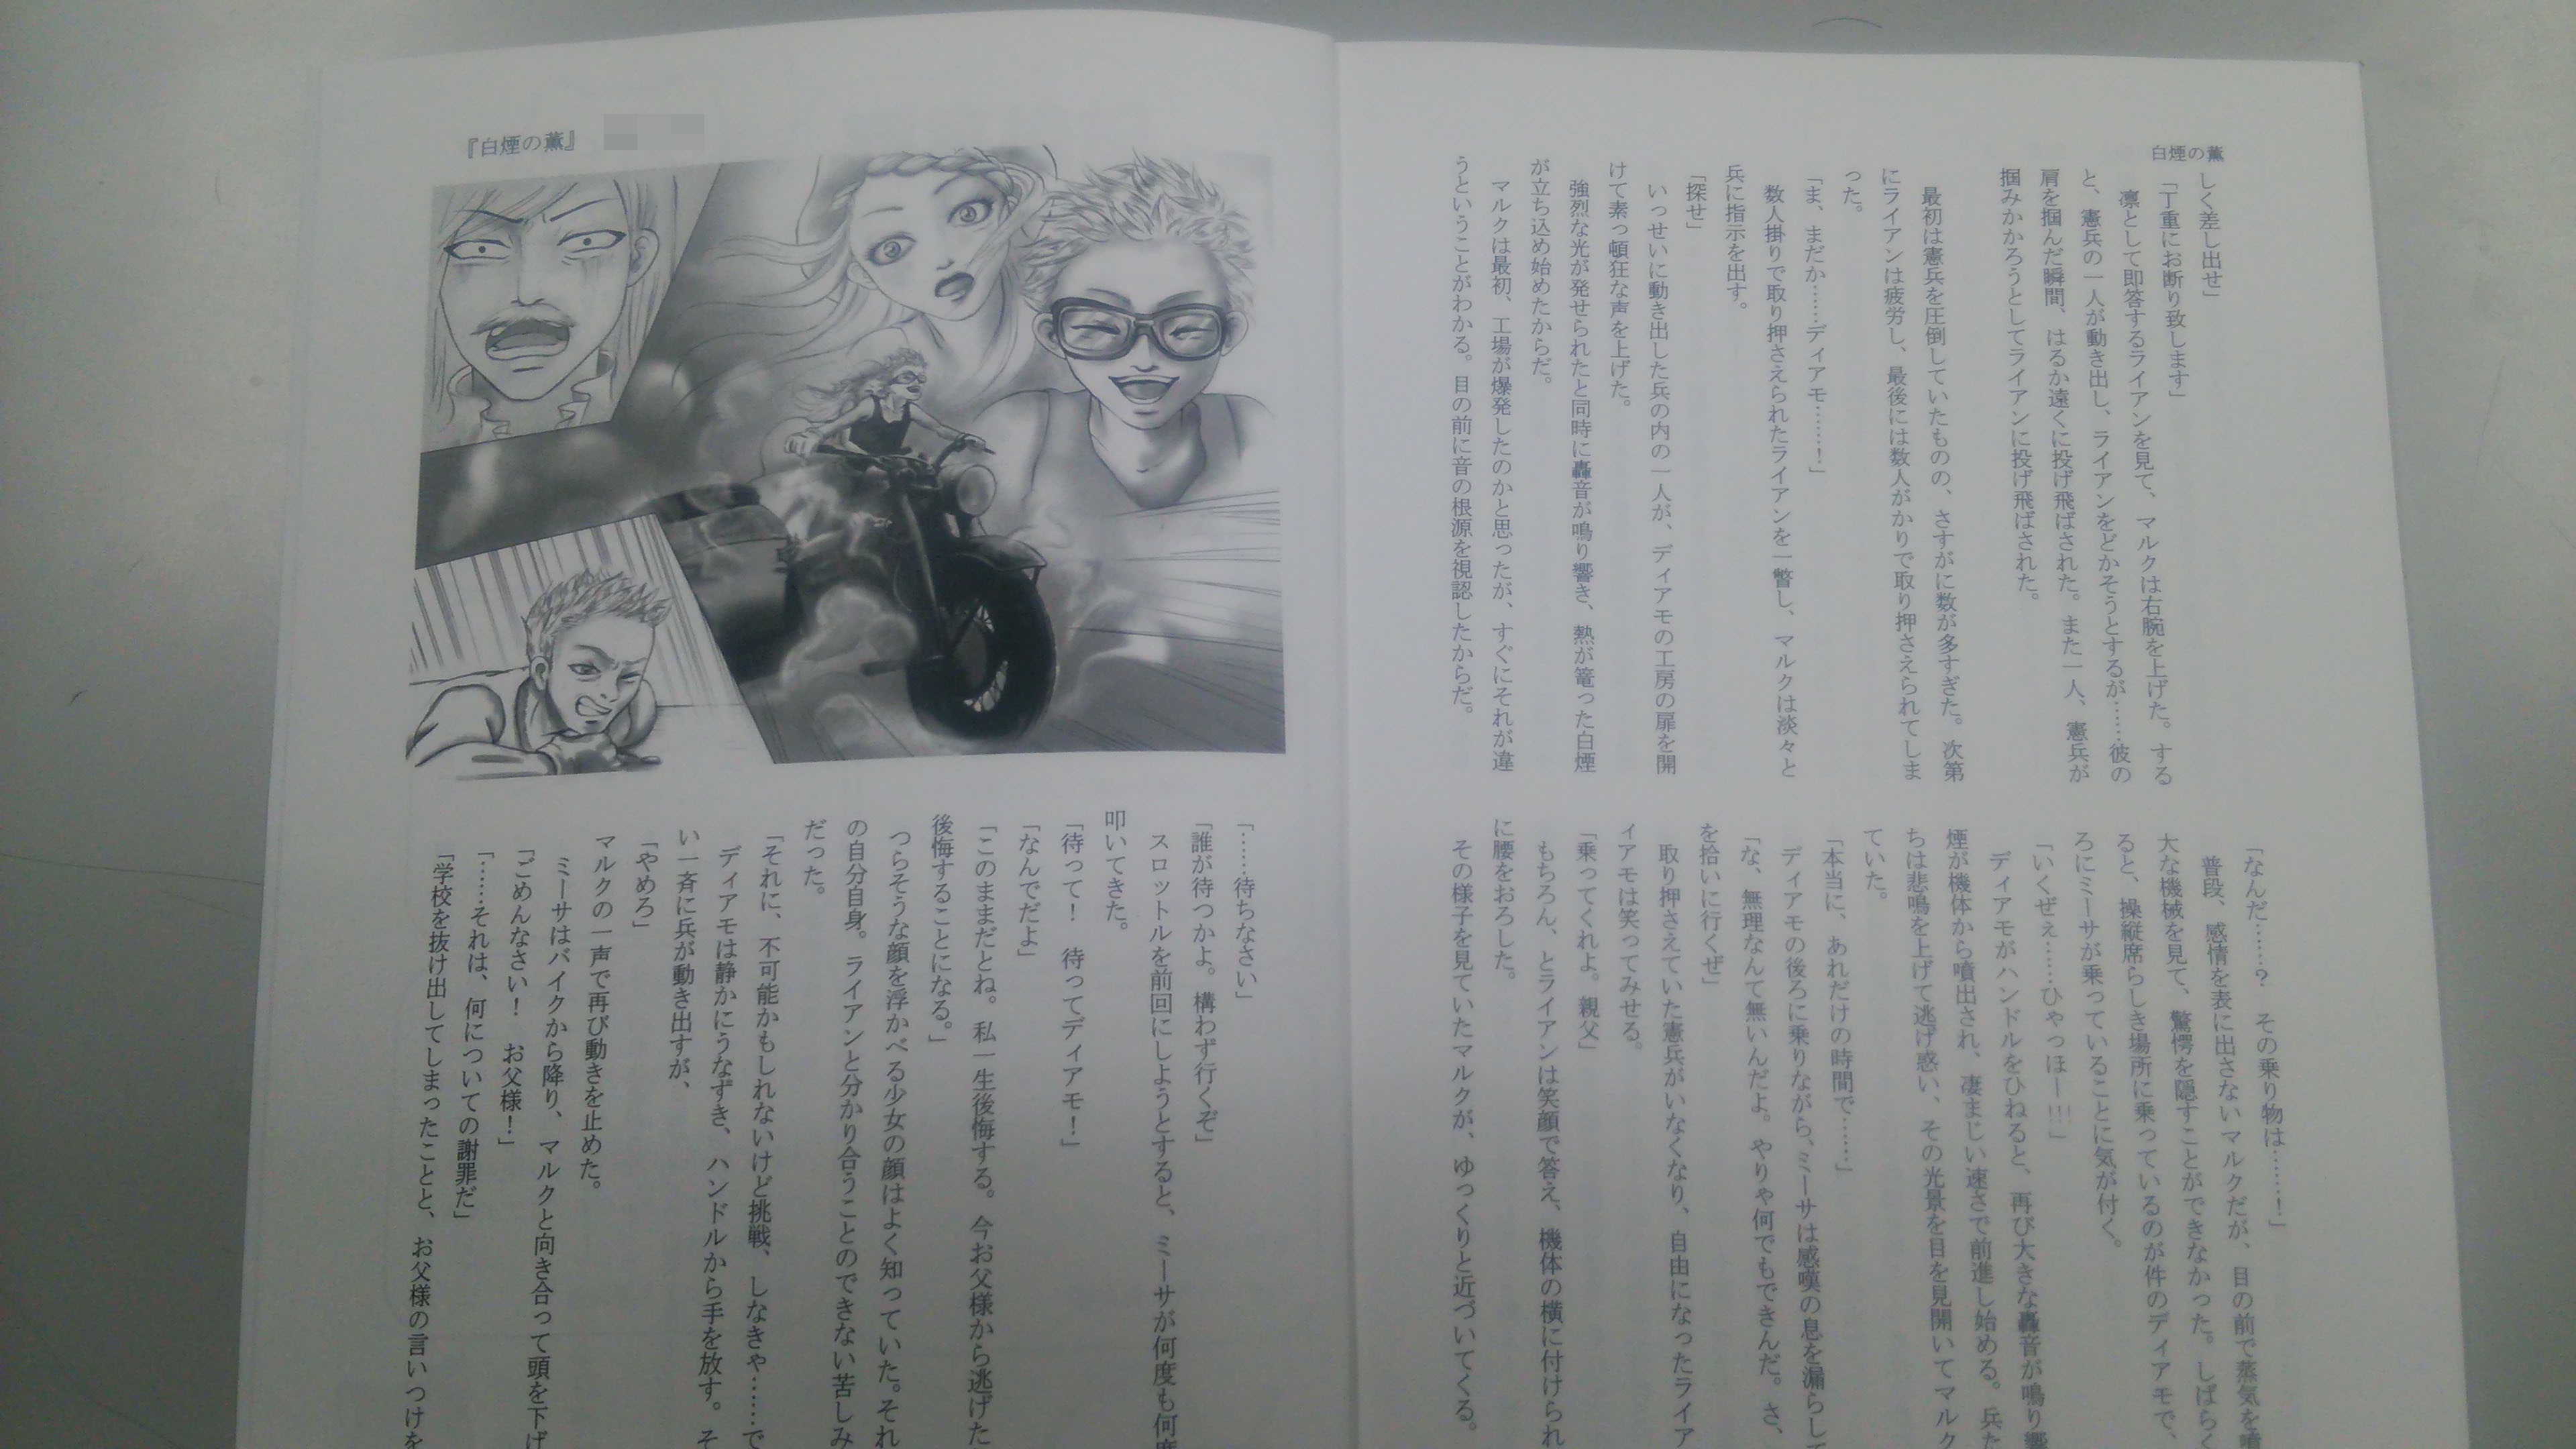 白煙の薫
しく差し出せ」
「丁重にお断り致します」
凛として即答するライアンを見て、マルクは右腕を上げた。する
と、憲兵の一人が動き出し、ライアンをどかそうとするが……彼の
肩を掴んだ瞬間、はるか遠くに投げ飛ばされた。また一人、憲兵が
掴みかかろうとしてライアンに投げ飛ばされた。
最初は憲兵を圧倒していたものの、さすがに数が多すぎた。次第
にライアンは疲労し、最後には数人がかりで取り押さえられてしま
った。
「ま、まだか……ディアモ……！」
数人掛りで取り押さえられたライアンを一瞥し、マルクは淡々と
兵に指示を出す。
「探せ」
いっせいに動き出した兵の内の一人が、ディアモの工房の扉を開
けて素っ頓狂な声を上げた。
強烈な光が発せられたと同時に轟音が鳴り響き、熱が篭った白煙
が立ち込め始めたからだ。
マルクは最初、工場が爆発したのかと思ったが、すぐにそれが違
うということがわかる。目の前に音の根源を視認したからだ。
「なんだ……？　その乗り物は……！」
普段、感情を表に出さないマルクだが、目の前で蒸気を噴
大な機械を見て、驚愕を隠すことができなかった。しばらく
ると、操縦席らしき場所に乗っているのが件のディアモで、
ろにミーサが乗っていることに気が付く。
「いくぜぇ……ひゃっほー!!!」
ディアモがハンドルをひねると、再び大きな轟音が鳴り響
煙が機体から噴出され、凄まじい速さで前進し始める。兵た
ちは悲鳴を上げて逃げ惑い、その光景を目を見開いてマルク
ていた。
「本当に、あれだけの時間で……」
ディアモの後ろに乗りながら、ミーサは感嘆の息を漏らして
「な、無理なんて無いんだよ。やりゃ何でもできんだ。さ、
を拾いに行くぜ」
取り押さえていた憲兵がいなくなり、自由になったライア
ィアモは笑ってみせる。
「乗ってくれよ。親父」
もちろん、とライアンは笑顔で答え、機体の横に付けられ
に腰をおろした。
その様子を見ていたマルクが、ゆっくりと近づいてくる。
『白煙の薫』
「……待ちなさい」
「誰が待つかよ。構わず行くぞ」
スロットルを前回にしようとすると、ミーサが何度も何度
叩いてきた。
「待って！　待ってディアモ！」
「なんでだよ」
「このままだとね。私一生後悔する。今お父様から逃げた
後悔することになる。」
つらそうな顔を浮かべる少女の顔はよく知っていた。それ
の自分自身。ライアンと分かり合うことのできない苦しみ
だった。
「それに、不可能かもしれないけど挑戦、しなきゃ……で
ディアモは静かにうなずき、ハンドルから手を放す。そ
い一斉に兵が動き出すが、
「やめろ」
マルクの一声で再び動きを止めた。
ミーサはバイクから降り、マルクと向き合って頭を下げ
「ごめんなさい！　お父様！」
「……それは、何についての謝罪だ」
「学校を抜け出してしまったことと、お父様の言いつけを